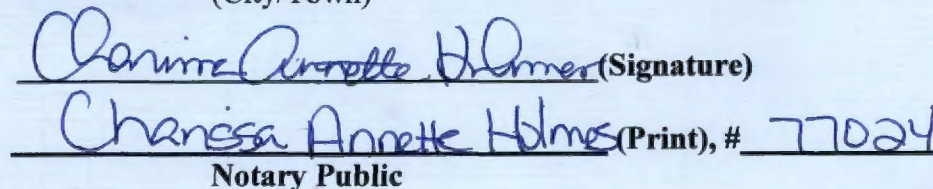 (City/Town)
Charissa Annette Holmes (Signature)
Charissa Annette Holmes (Print), # 77024
Notary Public